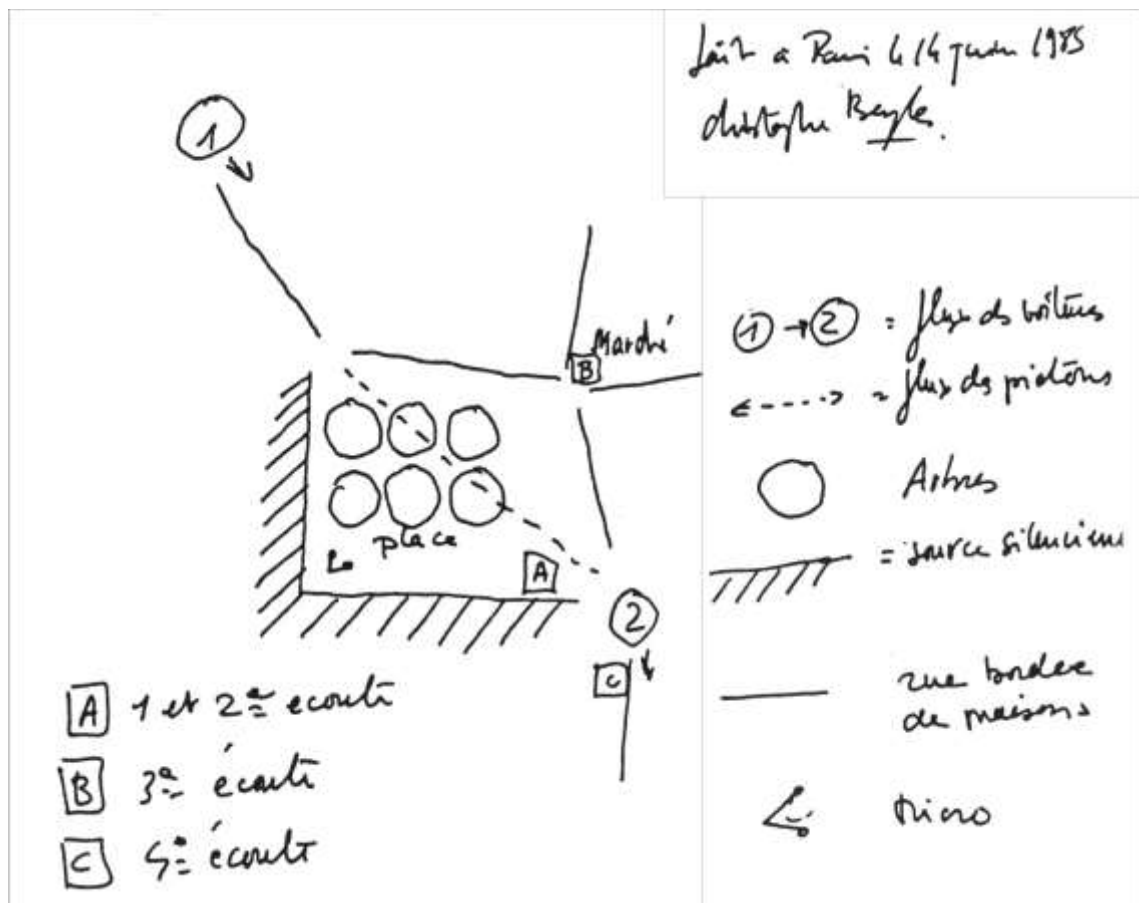 fait a Paris le 14 juin 1985
Christophe
1
Marché
B
place
A
2
C
A 1 et 2e ecoute
B 3e écoute
C écoute
1 → 2 = flux des voitures
= flux des piétons
Arbres
= source silencieuse
rue bordée
de maisons
Micro